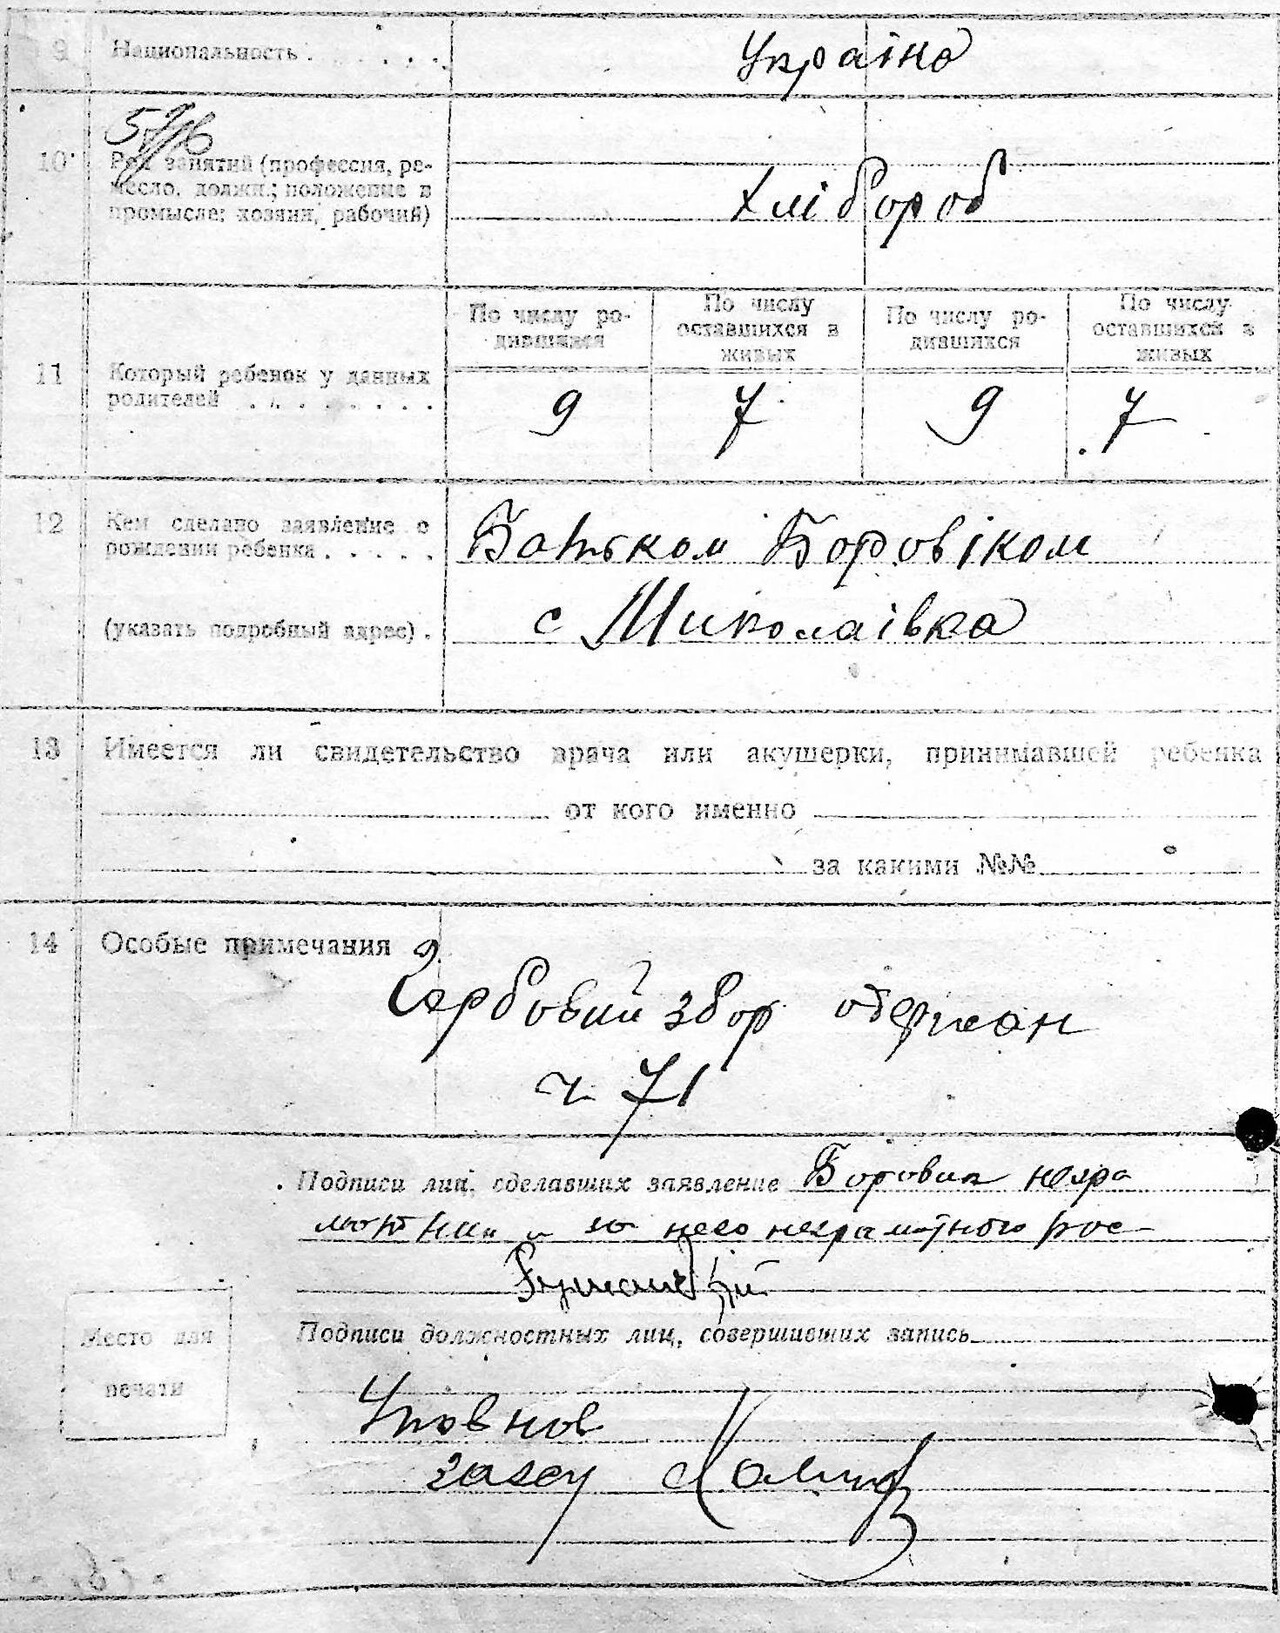 9 Национальность . . . . . . Україна
10 Род занятий (профессия, ре-
месло, должн.; положение в
промысле: хозяин, рабочий)
Хлібороб
11 Который ребенок у данных
родителей . . . . . . . .
По числу ро-
дившихся
По числу
оставшихся в
живых
По числу ро-
дившихся
По числу
оставшихся в
живых
9 7 9 7
12 Кем сделано заявление о
рождении ребенка . . . . .
Батьком Боровіком
(указать подробный адрес) . с Миколаівка
13 Имеется ли свидетельство врача или акушерки, принимавшей ребенка
от кого именно
за какими №№
14 Особые примечания
Гербовий збор одержан
ч 71
Подписи лиц, сделавших заявление Боровик негра
мотний за него неграмотного рос
Подписи должностных лиц, совершивших запись
Место для
печати
Уповнов
загсу